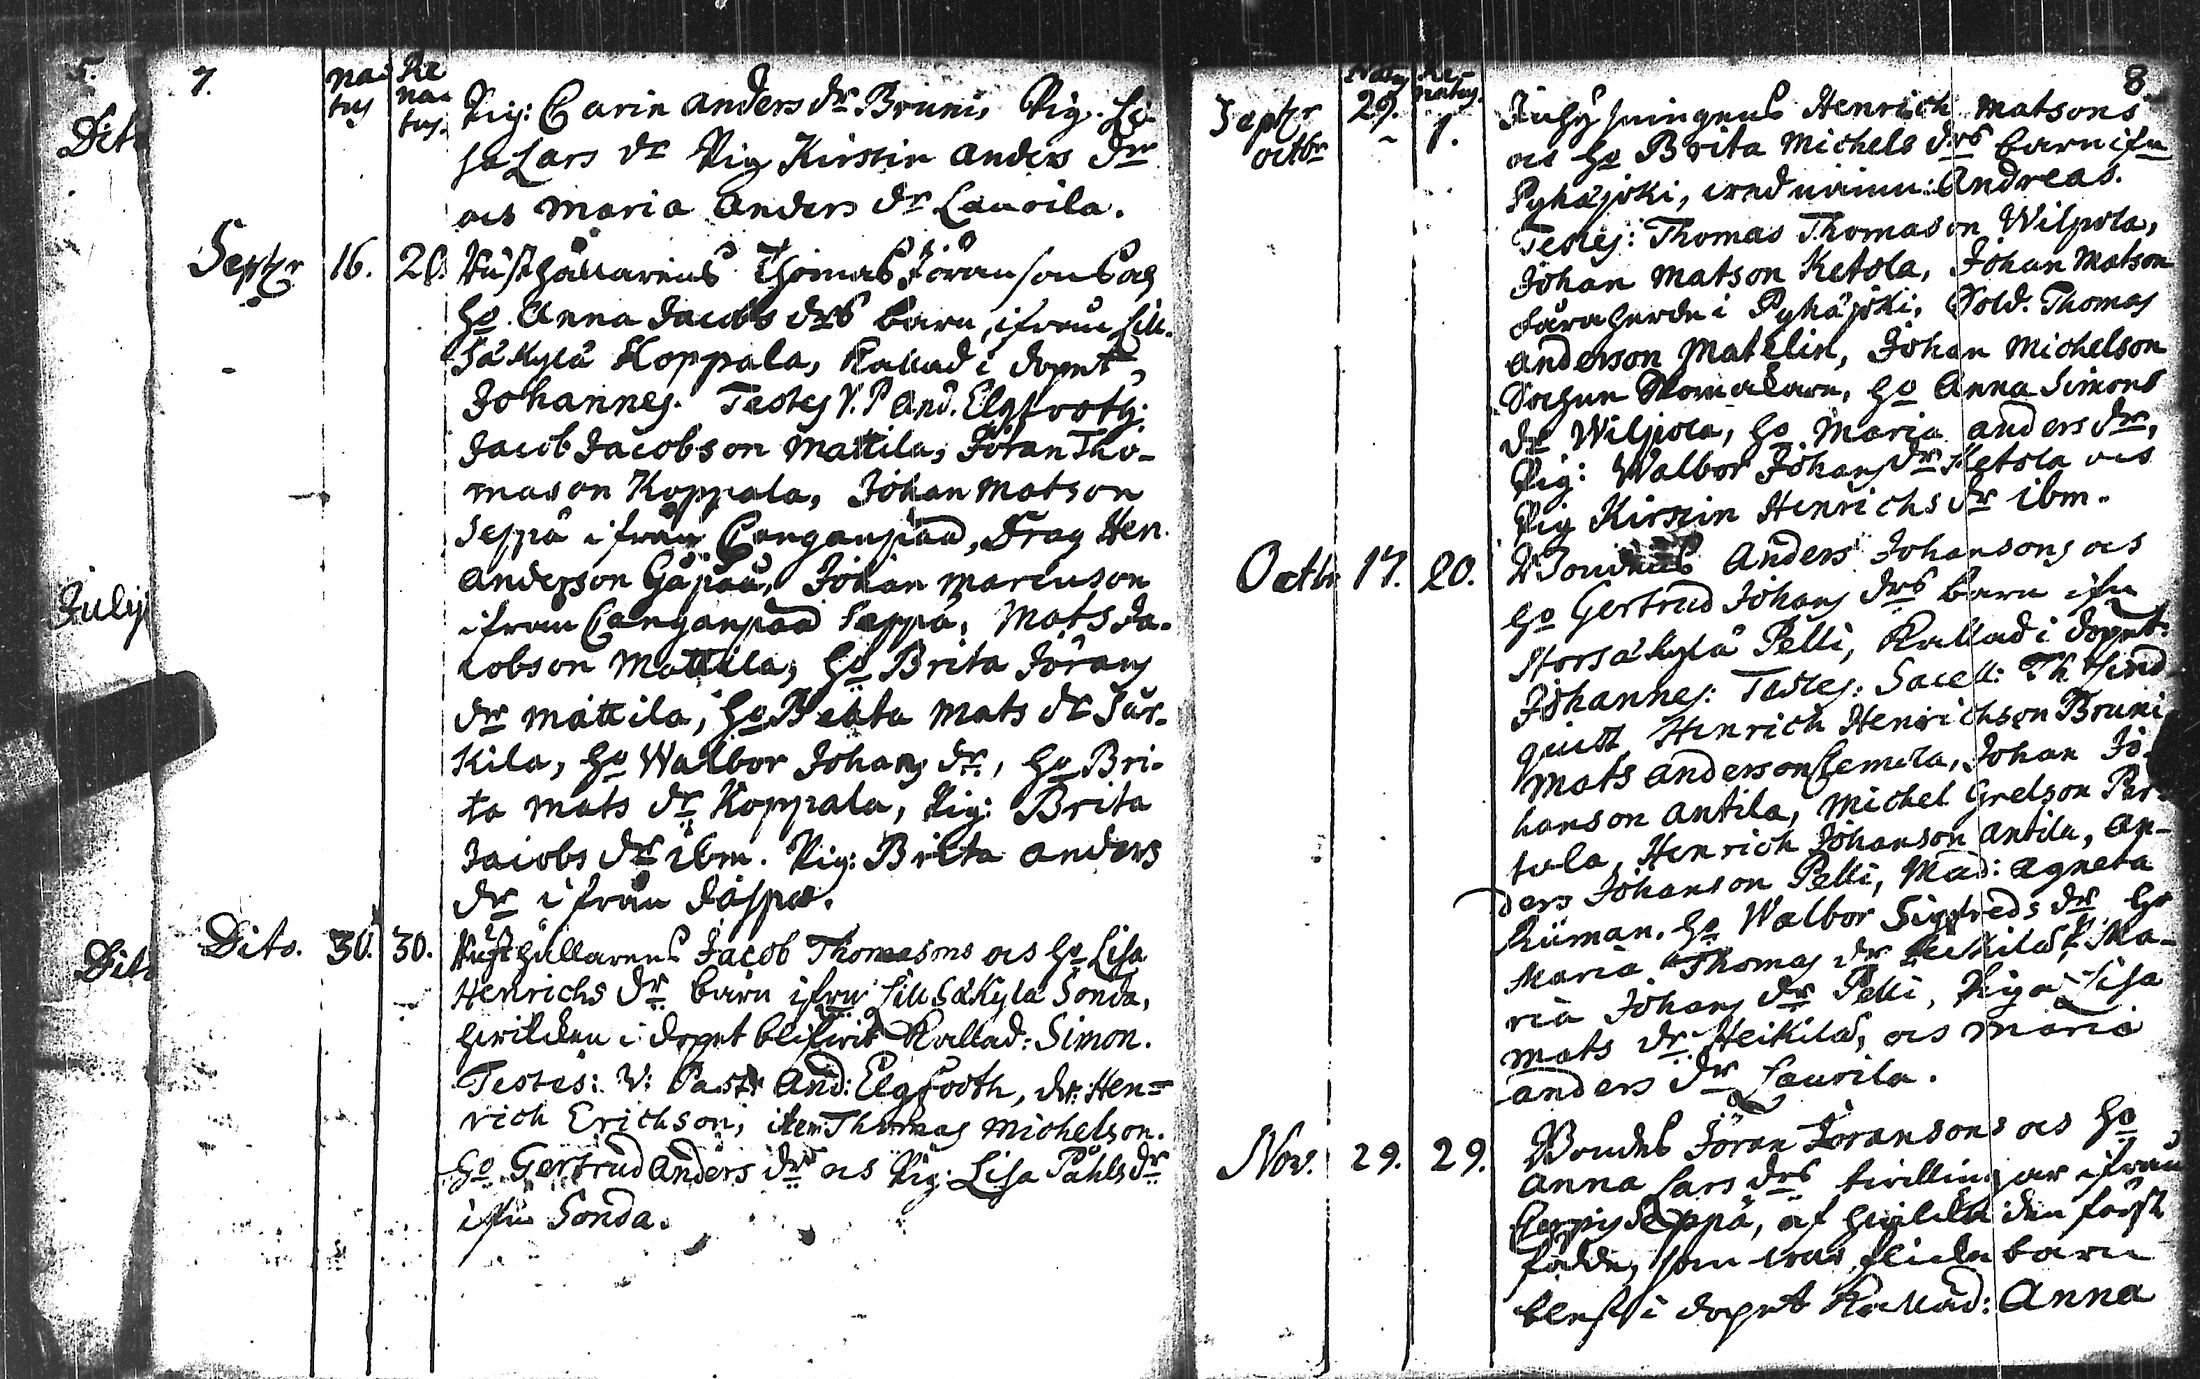 7.
Natus Renatus.
Pig: Carin Anders dr Bruni, Pig. Li-
sa Lars dr Pig Kirstin Anders dr
ocs Maria Anders dr Laurila.
Septr 16. 20. Rusthållarens Thomas Jöransons och
ho. Anna Jacobs drs barn, ifrån Lill.
Säkylä Koppala, kallad i dopet,
Johannes. Testes V.P. And. Elgfooth;
Jacob Jacobson Mattila, Jöran Tho-
mason Koppala, Johan Matson
Seppä ifrån Canganpää, Drag Hen.
Anderson Johan Marcuson
ifrån Canganpää Seppä, Mats Ja-
cobson Mattila, ho Brita Jörans
dr Mattila, ho Beata Mats dr
Kila, ho Walbor Johans dr, ho Bri-
ta Mats dr Koppala, Pig: Brita
Jacobs dr ibm. Pig: Brita Anders
dr ifrån
Dito. 30. 30. Rusthållarens Jacob Thomasons ocs ho Lisa
Henrichs dr barn ifrn LillSäkylä Sonda,
hwilken i dopet blifwit kallad: Simon.
Testes: V: Pastr And: Elgfooth, dr: Hen-
rich Erichson, item Thomas Michelson.
ho Gertrud Anders dr ocs Pig: Lisa Påhls dr
ifrn Sonda.
Dito
July
Dito
8
Natus Renatus.
Septr 29. Henrich Matsons
octbr - 1. ocs ho Brita Michels drs barn ifrn
Pyhäjoki, wid namn: Andreas.
Testes: Thomas Thomason Wilpola,
Johan Matson Ketola, Johan Matson
fåraherde i Pyhäjoki, Sold. Thomas
Anderson Matelin, Johan Michelson
Sochne Skomakare, ho Anna Simons
dr Wilpola, ho Maria Anders dr,
Pig: Walbor Johans dr Ketola ocs
Pig Kirstin Henrichs dr ibm.
Octbr 17. 20. Bondens Anders Johansons ocs
ho Gertrud Johans drs barn ifrn
Storsäkylä Pelli, kallad i dopet:
Johannes: Testes: Sacell: Th
quist, Henrich Henrichson Bruni
Mats Anderson Johan Jo-
hanson Antila, Michel Grelson Per-
tula, Henrich Johanson Antila, An-
ders Johanson Pelli, Mad: Agneta
ho Walbor Sigfreds dr, ho
Maria Thomas dr Ma-
ria Johans dr Pelli, Piga Lisa
Mats dr Heikila, ocs Maria
Anders dr Laurila.
Nov. 29. 29. Bondes Jöran Jöransons ocs ho
Anna Lars drs twillingar ifrån
Seppä, af hwilka den först
födde, som war flicke barn
blef i dopet kallad: Anna